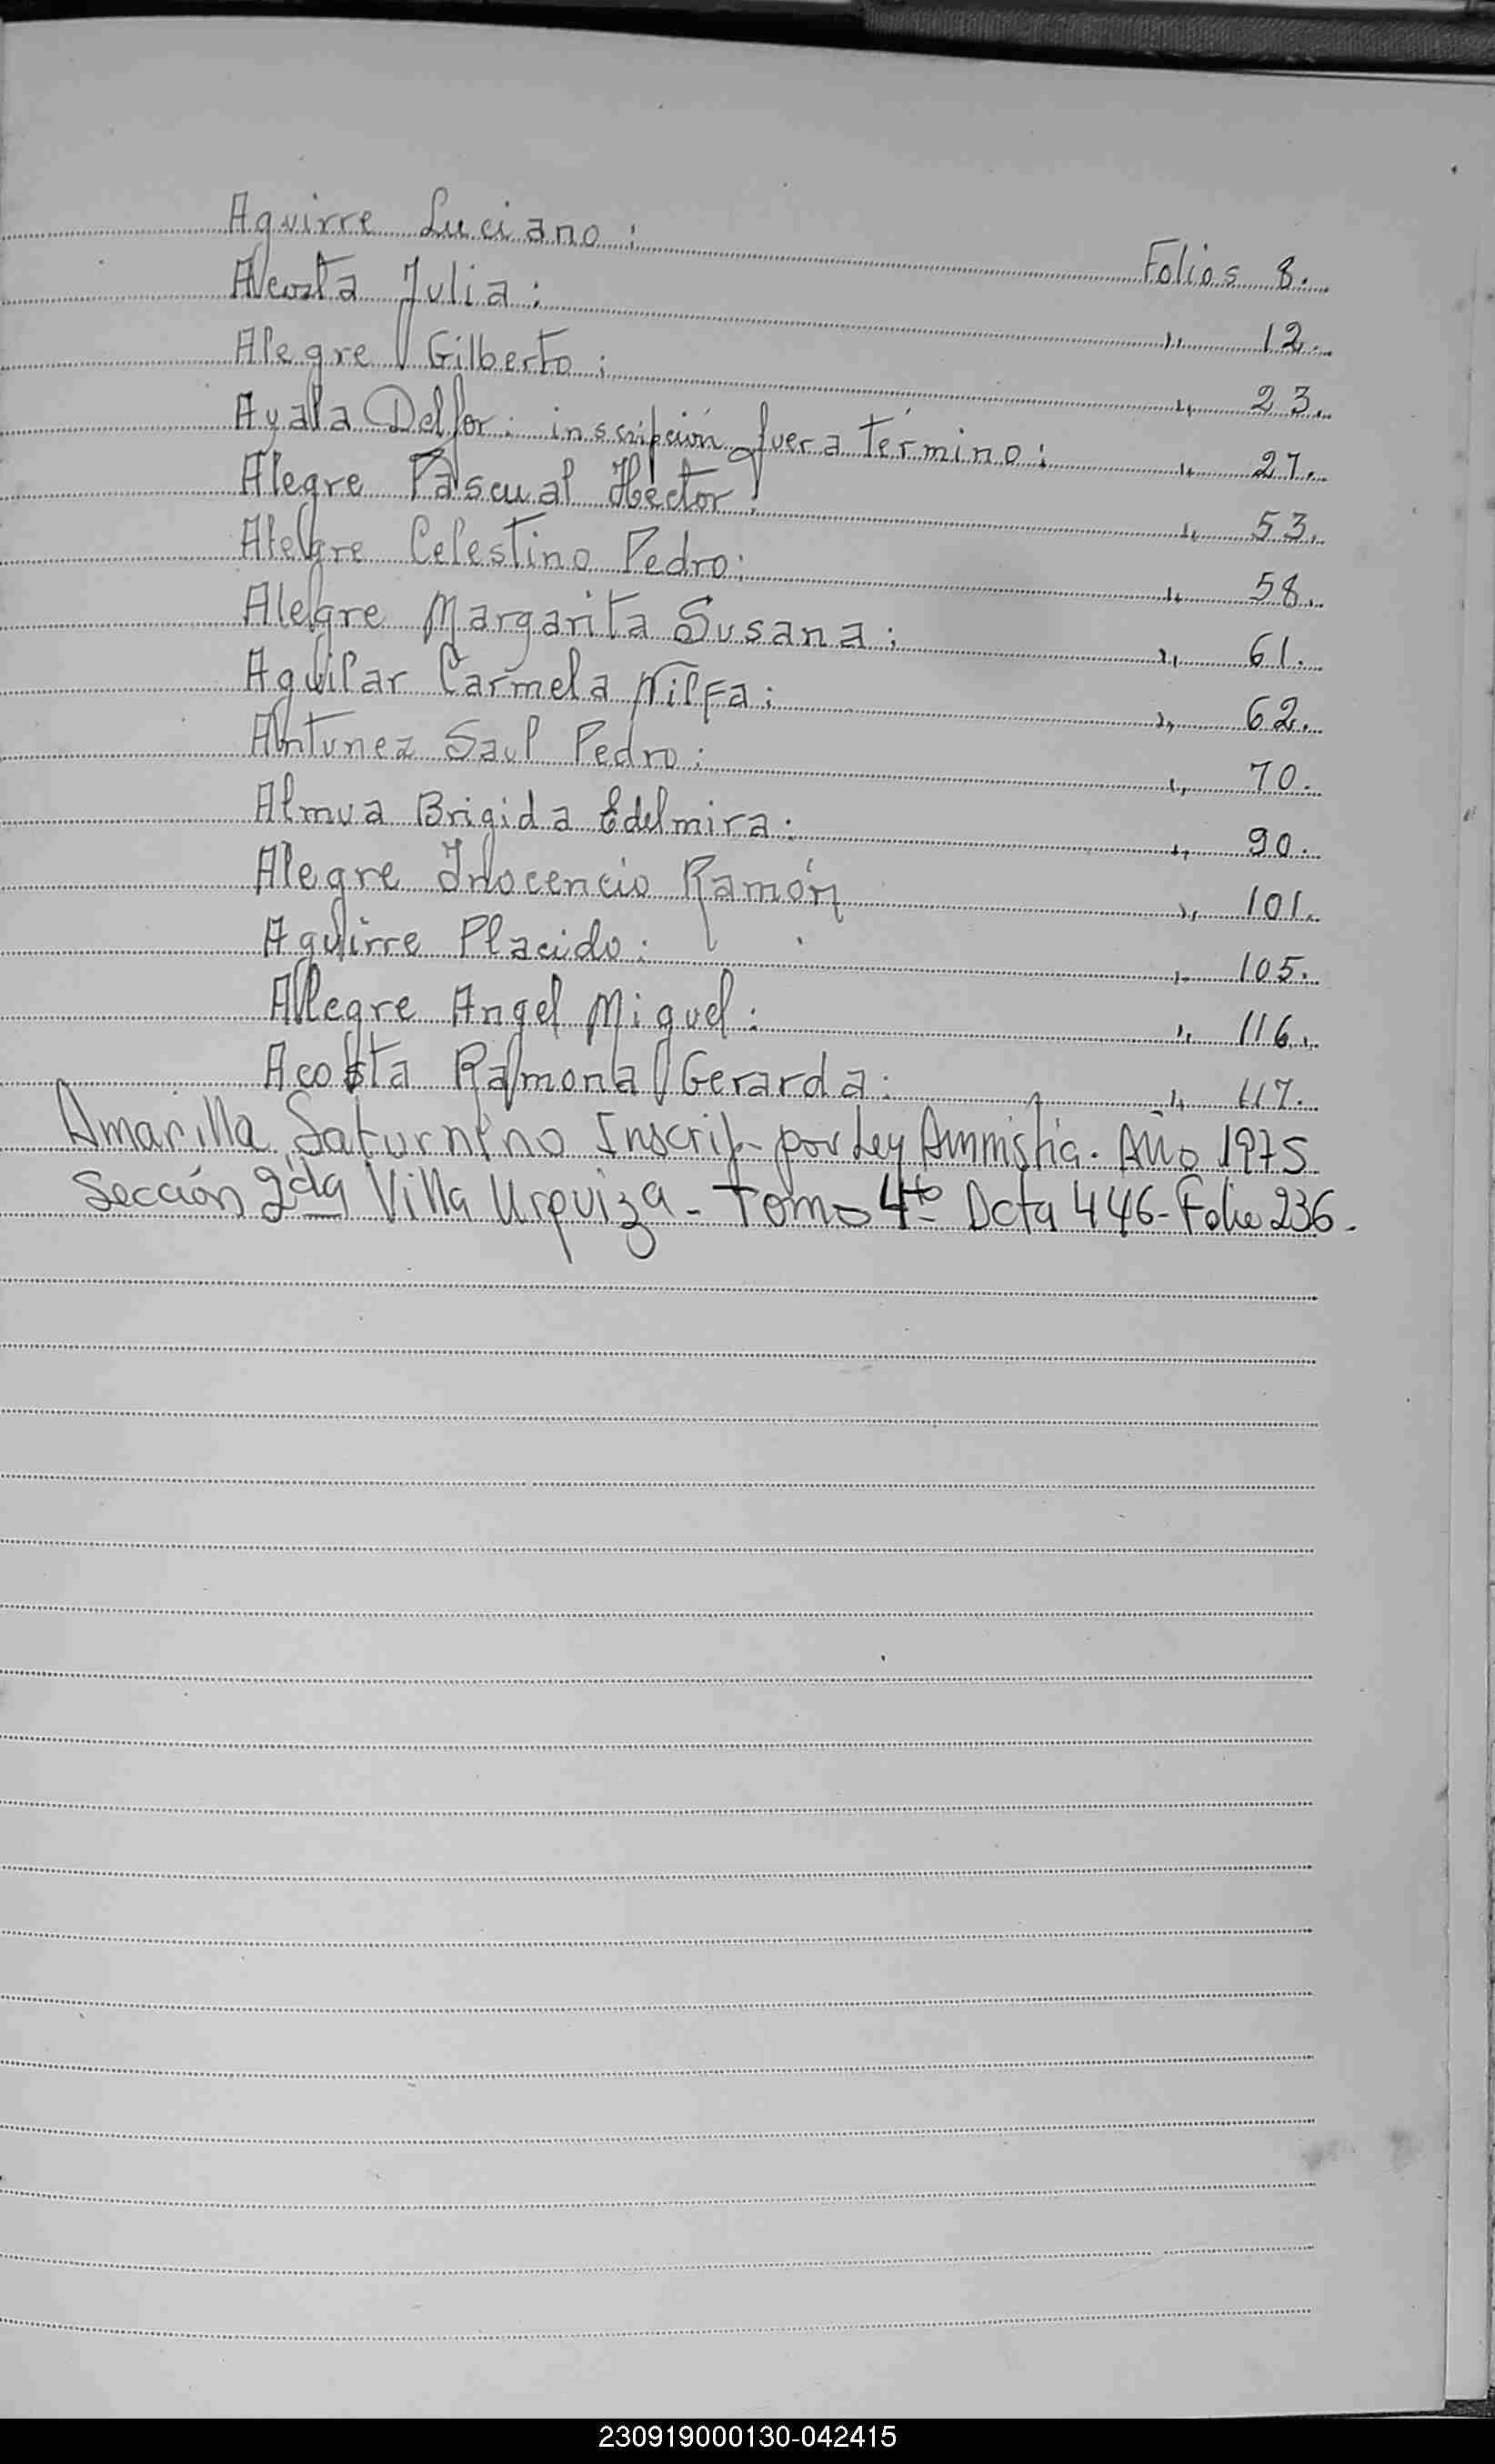 Aguirre Luciano: Folios 8.
Acosta Julia: " 12.
Alegre Gilberto: " 23.
Ayala Delfor: inscripción fuera término: " 27.
Alegre Pascual Héctor: " 53.
Alegre Celestino Pedro: " 58.
Alegre Margarita Susana: " 61.
Aguilar Carmela Nilfa: " 62.
Antunez Saul Pedro: " 70.
Almua Brigida Edelmira: " 90.
Alegre Inocencio Ramón " 101.
Aguirre Placido: " 105.
Alegre Angel Miguel: " 116.
Acosta Ramona Gerarda: " 117.
Amarilla Saturnino Inscrip- por Ley Amnistia. Año 1975
Sección 2da Villa Urquiza - Tomo 4to Acta 446 - Folio 236.
230919000130-042415